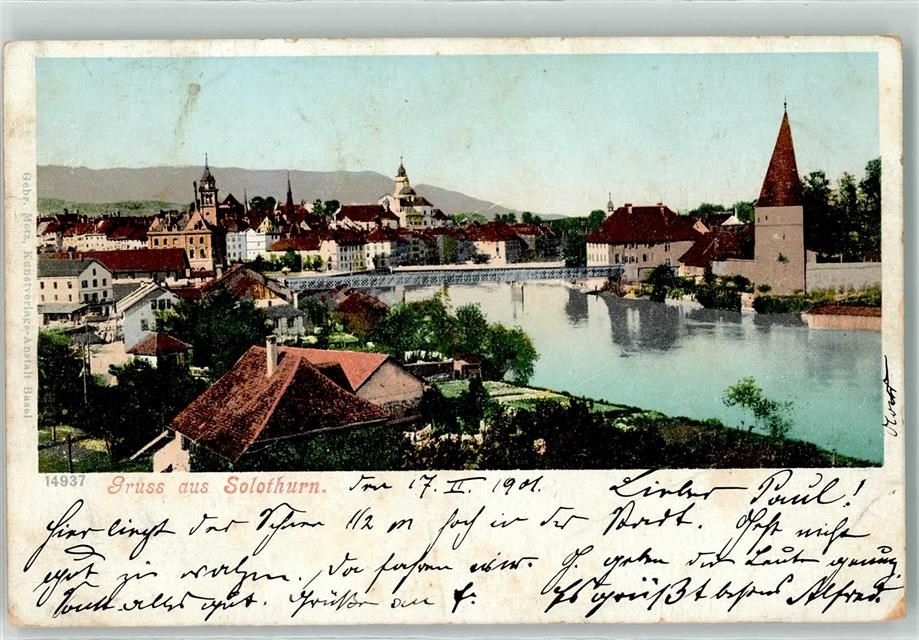 Gebr. Metz, Kunstverlags-Anstalt Basel
14937 Gruss aus Solothurn. den 17. II. 1901. Lieber Paul!
Hier liegt der Schnee 1 1/2 m hoch in der Stadt. Geht nicht
gut zu . Da fahren wir. geben die Leute genug
Sonst alles gut. Grüße an f. Es grüßt bestens Alfred.